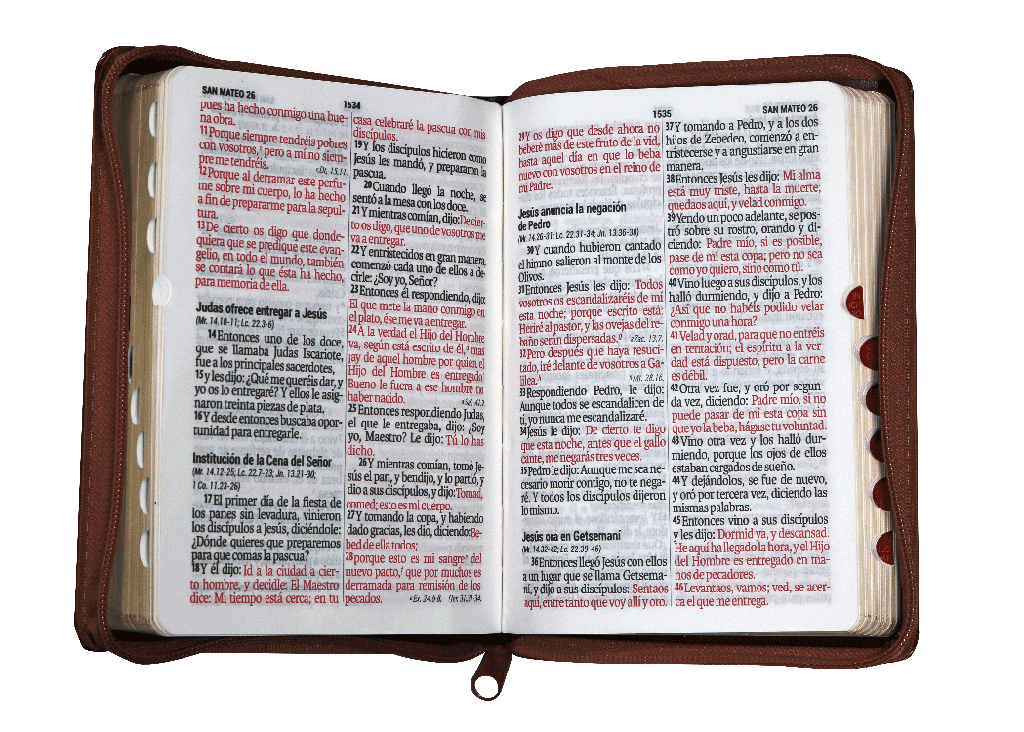 SAN MATEO 26
1534
pues ha hecho conmigo una bue-
na obra.
11 Porque siempre tendréis pobres
con vosotros, pero a mí no siem-
pre me tendréis.
12 Porque al derramar este perfu-
me sobre mi cuerpo, lo ha hecho
a fin de prepararme para la sepul-
tura.
13 De cierto os digo que donde-
quiera que se predique este evan-
gelio, en todo el mundo, también
se contará lo que ésta ha hecho,
para memoria de ella.
Judas ofrece entregar a Jesús
(Mr. 14.10-11; Lc. 22.3-6)
14 Entonces uno de los doce,
que se llamaba Judas Iscariote,
fue a los principales sacerdotes,
15 y les dijo: ¿Qué me queréis dar, y
yo os lo entregaré? Y ellos le asig-
naron treinta piezas de plata.
16 Y desde entonces buscaba opor-
tunidad para entregarle.
Institución de la Cena del Señor
(Mr. 14.12-25; Lc. 22.7-23; Jn. 13.21-30;
1 Co. 11.23-26)
17 El primer día de la fiesta de
los panes sin levadura, vinieron
los discípulos a Jesús, diciéndole:
¿Dónde quieres que preparemos
para que comas la pascua?
18 Y él dijo: Id a la ciudad a cier-
to hombre, y decidle: El Maestro
dice: Mi tiempo está cerca; en tu
casa celebraré la pascua con mis
discípulos.
19 Y los discípulos hicieron como
Jesús les mandó, y prepararon la
pascua.
20 Cuando llegó la noche, se
sentó a la mesa con los doce.
21 Y mientras comían, dijo: De cier-
to os digo, que uno de vosotros me
va a entregar.
22 Y entristecidos en gran manera,
comenzó cada uno de ellos a de-
cirle: ¿Soy yo, Señor?
23 Entonces él respondiendo, dijo:
El que mete la mano conmigo en
el plato, ése me va a entregar.
24 A la verdad el Hijo del Hombre
va, según está escrito de él, mas
¡ay de aquel hombre por quien el
Hijo del Hombre es entregado!
Bueno le fuera a ese hombre no
haber nacido.
25 Entonces respondiendo Judas,
el que le entregaba, dijo: ¿Soy
yo, Maestro? Le dijo: Tú lo has
dicho.
26 Y mientras comían, tomó Je-
sús el pan, y bendijo, y lo partió, y
dio a sus discípulos, y dijo: Tomad,
comed; esto es mi cuerpo.
27 Y tomando la copa, y habiendo
dado gracias, les dio, diciendo: Be-
bed de ella todos;
28 porque esto es mi sangre del
nuevo pacto, que por muchos es
derramada para remisión de los
pecados.
1535
SAN MATEO 26
29 Y os digo que desde ahora no
beberé más de este fruto de la vid,
hasta aquel día en que lo beba
nuevo con vosotros en el reino de
mi Padre.
Jesús anuncia la negación
de Pedro
(Mr. 14.26-31; Lc. 22.31-34; Jn. 13.36-38)
30 Y cuando hubieron cantado
el himno salieron al monte de los
Olivos.
31 Entonces Jesús les dijo: Todos
vosotros os escandalizaréis de mí
esta noche; porque escrito está:
Heriré al pastor, y las ovejas del re-
baño serán dispersadas. Zac. 13.7.
32 Pero después que haya resuci-
tado, iré delante de vosotros a Ga-
lilea. Mt. 28.16.
33 Respondiendo Pedro, le dijo:
Aunque todos se escandalicen de
ti, yo nunca me escandalizaré.
34 Jesús le dijo: De cierto te digo
que esta noche, antes que el gallo
cante, me negarás tres veces.
35 Pedro le dijo: Aunque me sea ne-
cesario morir contigo, no te nega-
ré. Y todos los discípulos dijeron
lo mismo.
Jesús ora en Getsemaní
(Mr. 14.32-42; Lc. 22.39-46)
36 Entonces llegó Jesús con ellos
a un lugar que se llama Getsema-
ní, y dijo a sus discípulos: Sentaos
aquí, entre tanto que voy allí y oro.
37 Y tomando a Pedro, y a los dos
hijos de Zebedeo, comenzó a en-
tristecerse y a angustiarse en gran
manera.
38 Entonces Jesús les dijo: Mi alma
está muy triste, hasta la muerte;
quedaos aquí, y velad conmigo.
39 Yendo un poco adelante, se pos-
tró sobre su rostro, orando y di-
ciendo: Padre mío, si es posible,
pase de mí esta copa; pero no sea
como yo quiero, sino como tú.
40 Vino luego a sus discípulos y los
halló durmiendo, y dijo a Pedro:
¿Así que no habéis podido velar
conmigo una hora?
41 Velad y orad, para que no entréis
en tentación; el espíritu a la ver
dad está dispuesto, pero la carne
es débil.
42 Otra vez fue, y oró por segun
da vez, diciendo: Padre mío, si no
puede pasar de mí esta copa sin
que yo la beba, hágase tu voluntad.
43 Vino otra vez y los halló dur-
miendo, porque los ojos de ellos
estaban cargados de sueño.
44 Y dejándolos, se fue de nuevo,
y oró por tercera vez, diciendo las
mismas palabras.
45 Entonces vino a sus discípulos
y les dijo: Dormid ya, y descansad.
He aquí ha llegado la hora, y el Hijo
del Hombre es entregado en ma-
nos de pecadores.
46 Levantaos, vamos; ved, se acer-
ca el que me entrega.